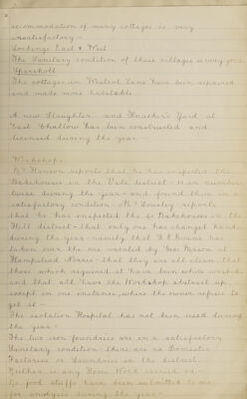 accommodation of many cottages is very
unsatisfactory.
Lockinge East & West
The Sanitary condition of these villages is very good
Sparsholt
The cottages in Westcot Lane have been repaired
and made more habitable.
A new Slaughter and Knacker's Yard at
East Challow has been constructed and
licensed during the year.
Workshops.
Mr Manson reports that he has inspected the
Bakehouses in the Vale district in number
twice during the year and found them in a
satisfactory condition. Mr Lousley reports
that he has inspected the Bakehouses in the
Hill district - that only one has changed hands
during the year namely that
taken over the one vacated by Geo Mason at
Hampstead Norris - that they are all clean, that
those which required it have been white washed
and that all have the Workshop abstract up,
except in one instance, where the owner refuses to
get it.
The isolation Hospital has not been used during
the year.
The two iron foundries are in a satisfactory
Sanitary condition - there are no Domestic
Factories or Laundries in the district.
Neither is any Home Work carried on.
No food stuffs have been submitted to me
for analysis during the year.